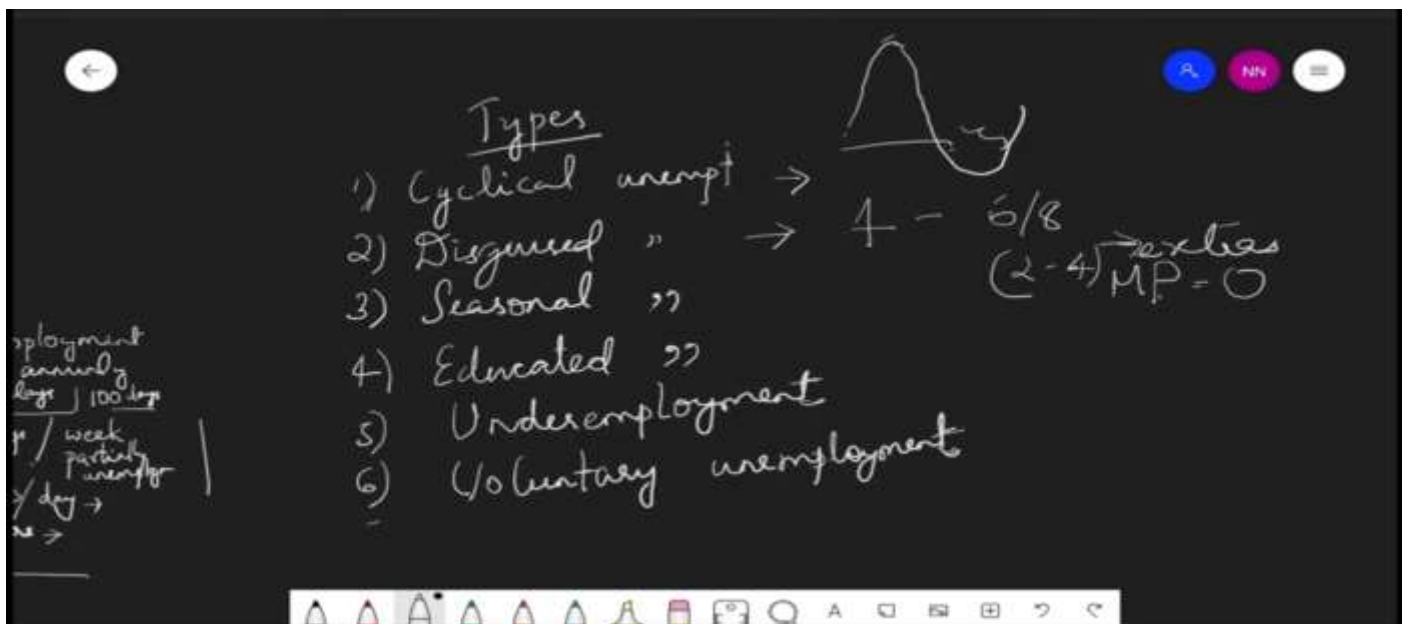 NN
Types
1) Cyclical unempt →
2) Disguised " → 4 - 6/8
(2-4) → extras
MP = 0
3) Seasonal "
4) Educated "
5) Underemployment
6) Voluntary unemployment
ployment
annually
days | 100 days
/ week
partially
unemploy
/ day →
→
A